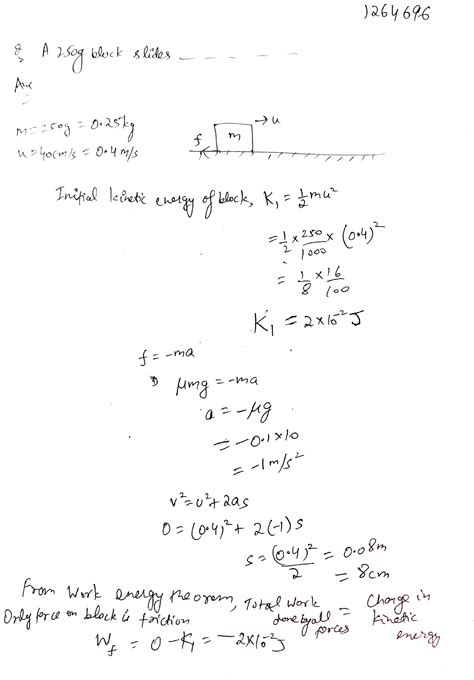 1264696
Q A 250g block slides - - - - -
Ans
m = 250g = 0.25kg
u = 40cm/s = 0.4m/s
f m → u
Initial kinetic energy of block, K₁ = 1/2 mu²
= 1/2 × 250/1000 × (0.4)²
= 1/8 × 16/100
K₁ = 2×10⁻² J
f = -ma
μmg = -ma
a = -μg
= -0.1×10
= -1m/s²
v² = u² + 2as
0 = (0.4)² + 2(-1)s
s = (0.4)²/2 = 0.08m
= 8cm
From Work energy theorem, Total Work done by all forces = Change in kinetic energy
Only force on block is friction
W_f = 0 - K₁ = -2×10⁻² J